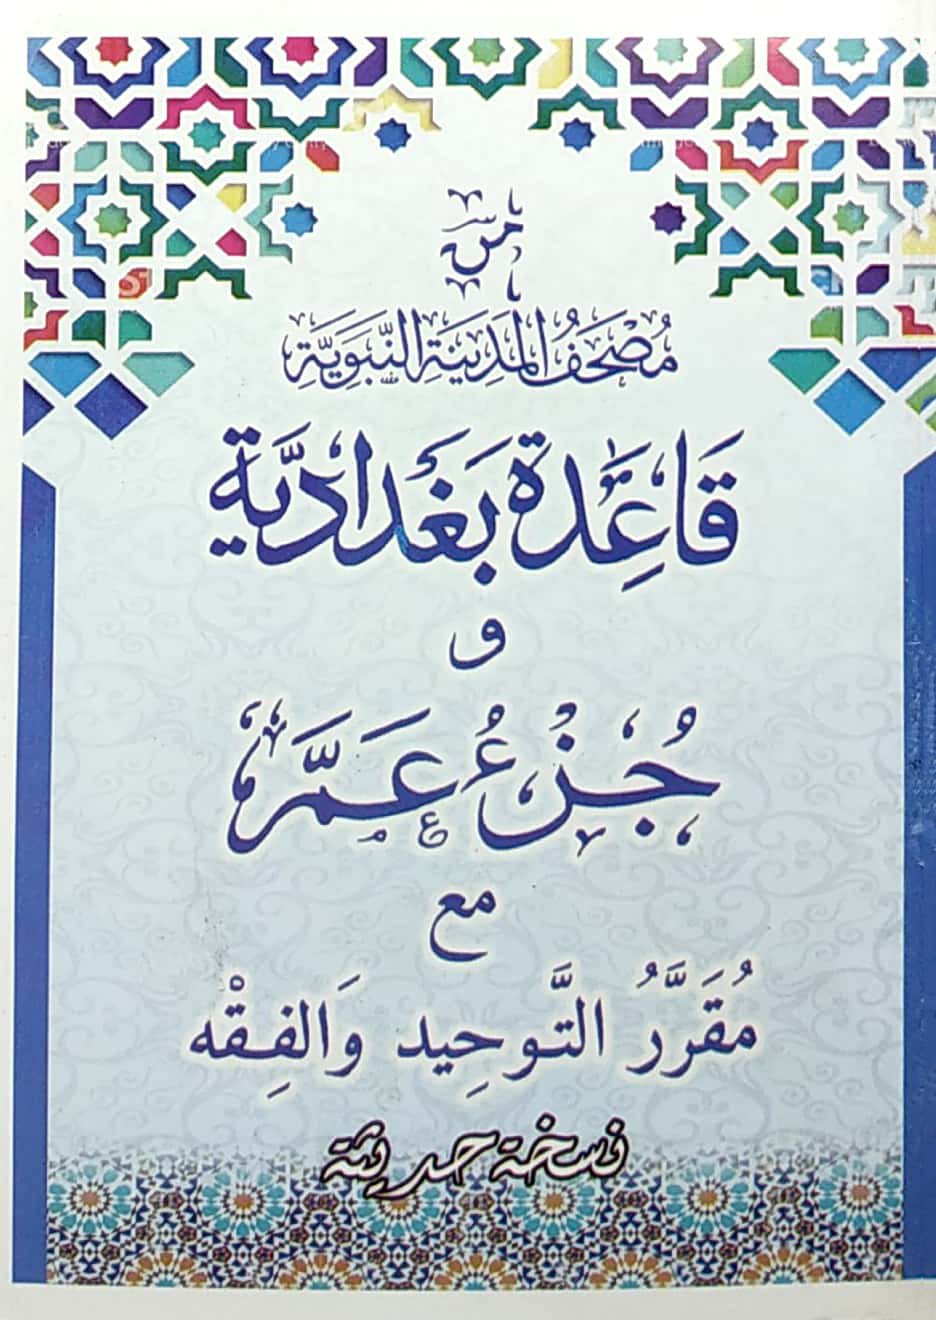 من
مُصْحَفُ المَدِينَةِ النَّبَوِيَّةِ
قَاعِدَة بَغْدَادِيَّة
و
جُزْءُ عَمَّ
مع
مُقَرَّرُ التَّوحِيد وَالفِقْه
نسخة حديثة